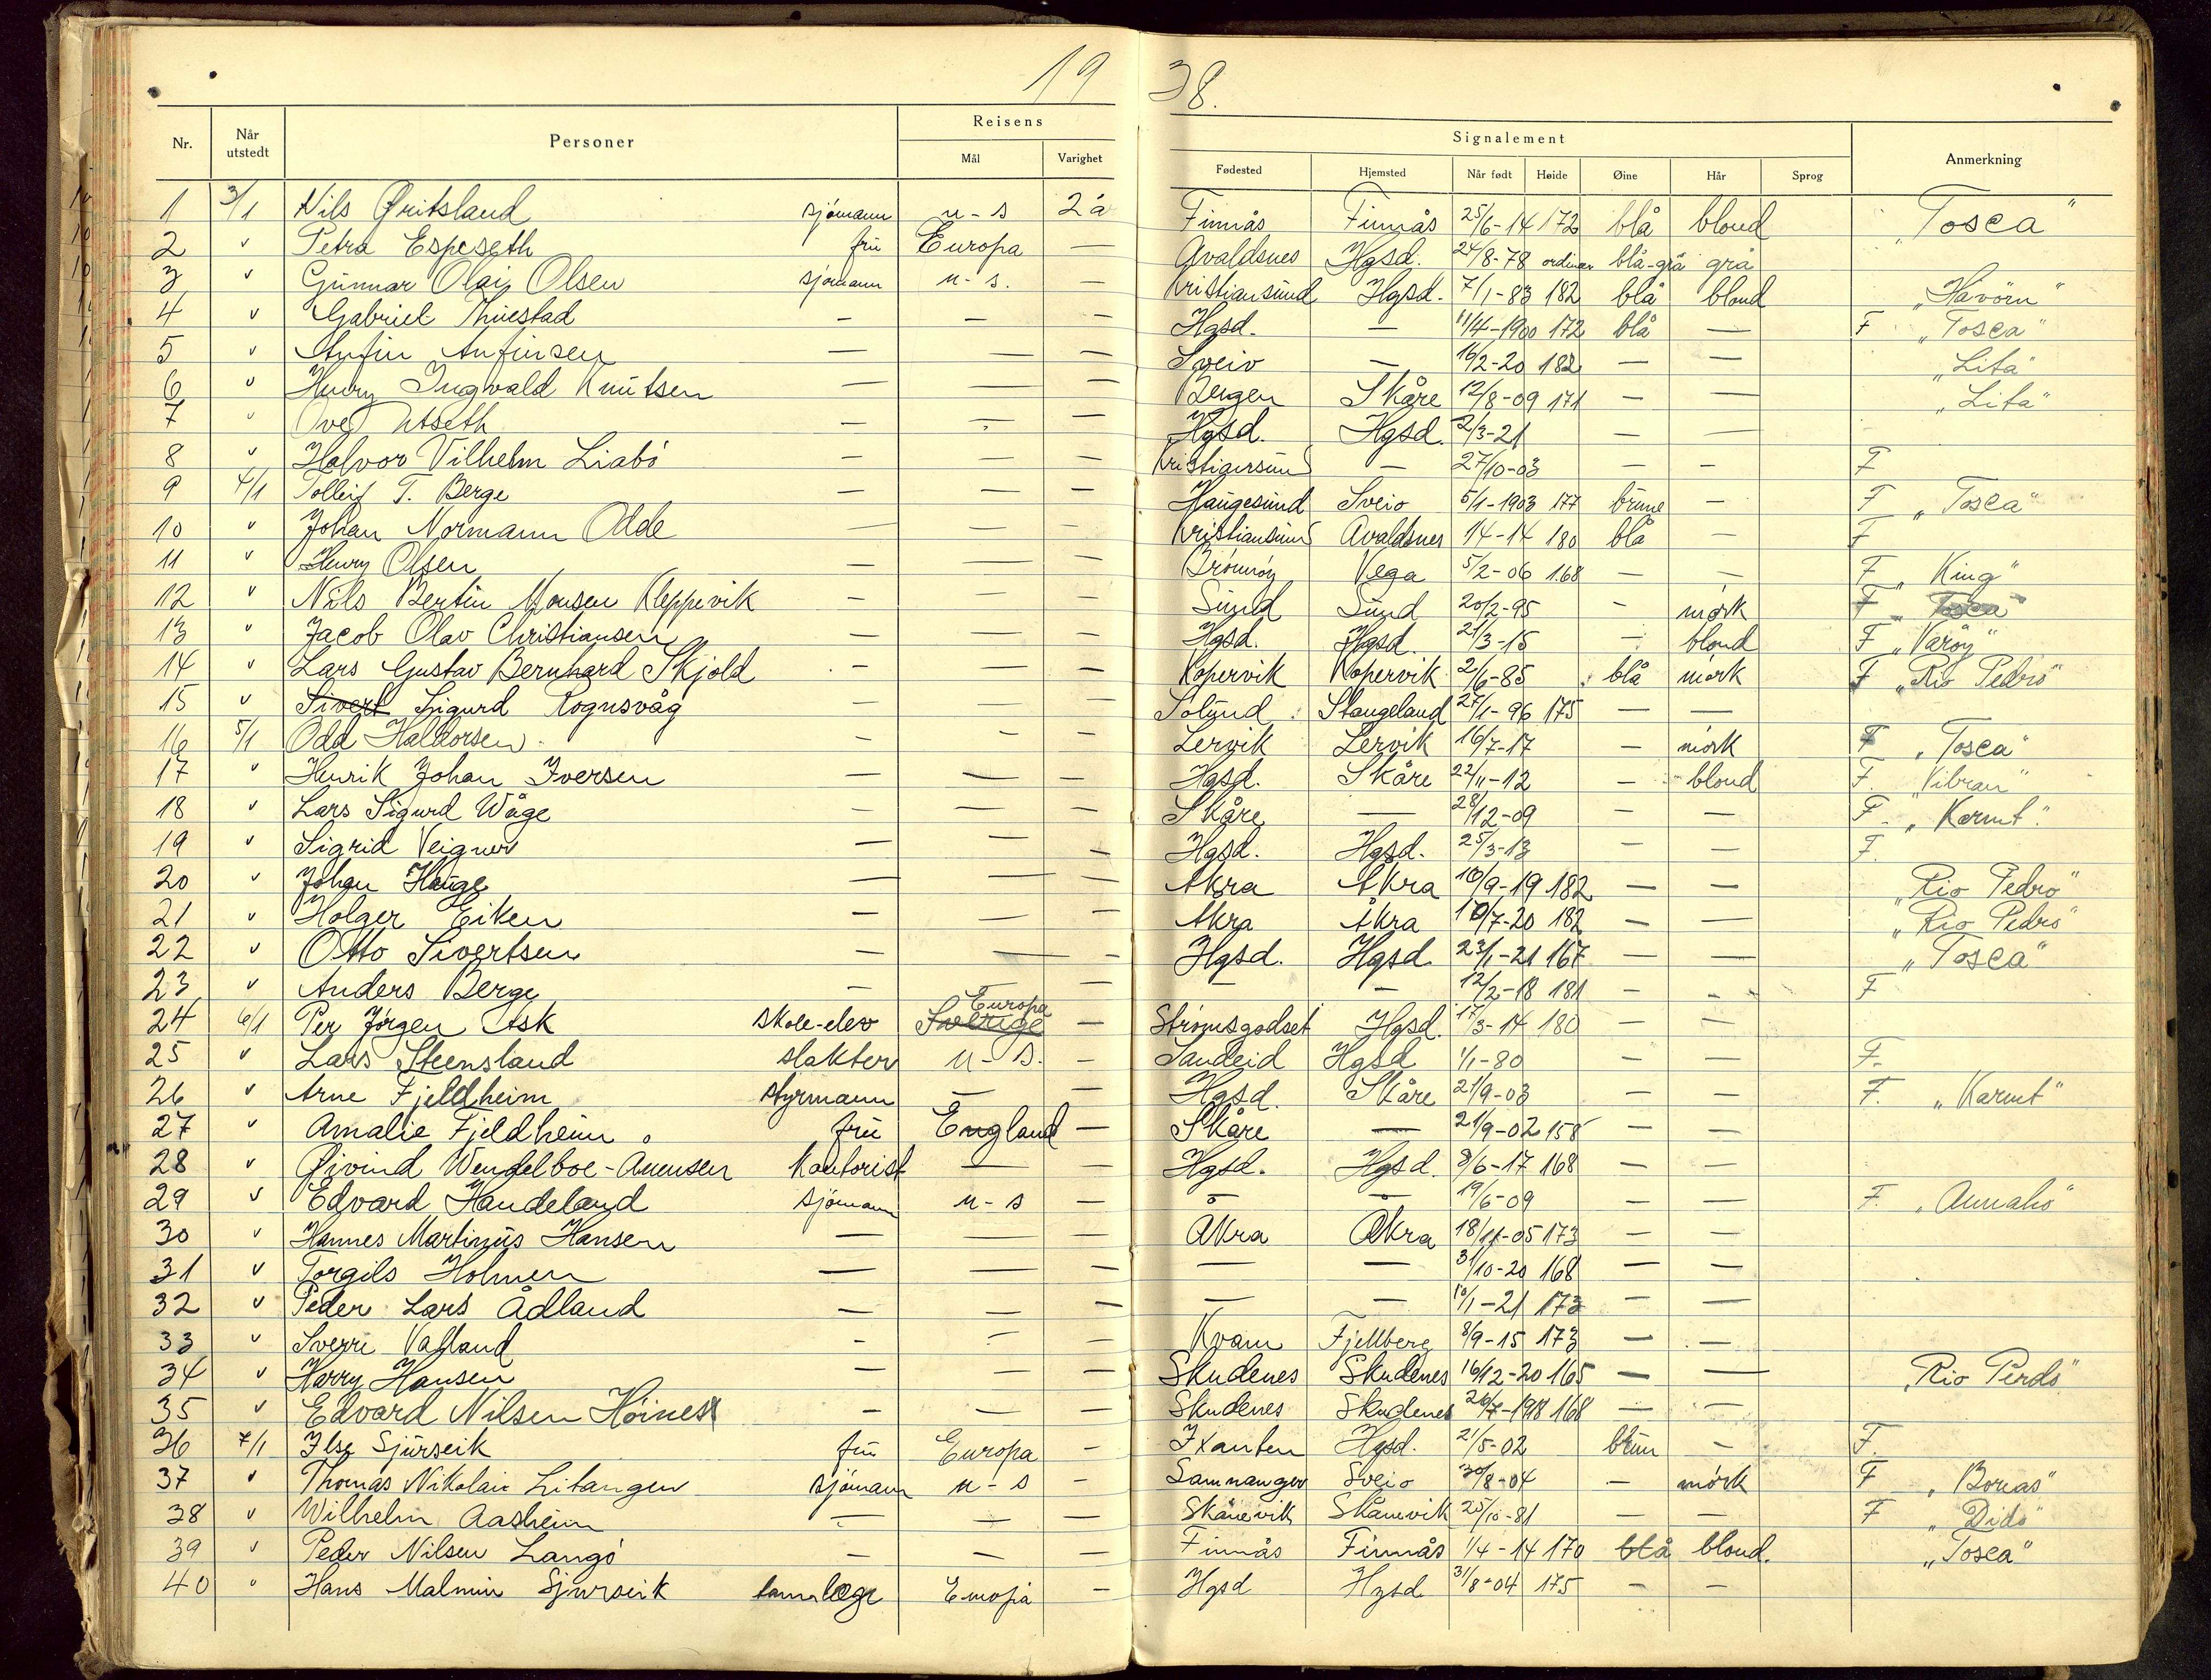 19 38.
Nr. Når utstedt Personer Reisens Mål Varighet Signalement Fødested Hjemsted Når født Høide Øine Hår Sprog Anmerkning
1 3/1 Nils Gritsland sjømann u-s 2 å Finnås Finnås 25/6-14 172 blå blond "Tosca"
2 " Petra Espeseth frü Europa — Avaldsnes Hgsd. 24/8-78 ordinær blå-grå grå
3 " Gunnar Olai Olsen sjømann u-s. — Kristiansund Hgsd. 7/1-83 182 blå blond "Havörn"
4 " Gabriel Thuestad — — — Hgsd. — 11/4-1900 172 blå — F "Tosca"
5 " Anfin Anfinsen — — — Sveio — 16/2-20 182 — — "Lita"
6 " Henry Ingvald Knutsen — — — Bergen Skåre 12/8-09 171 — — "Lita"
7 " Ove Utseth — — — Hgsd. Hgsd. 2/3-21 — —
8 " Halvor Vilhelm Liabö — — — Kristiansund — 27/10-03 — — F
9 4/1 Tolleif T. Berge — — — Haugesund Sveio 5/1-1903 177 brune — F "Tosca"
10 " Johan Normann Odde — — — Kristiansund Avaldsnes 1/4-14 180 blå — F
11 " Henry Olsen — — — Brönnöy Vega 5/2-06 168 — — F "King"
12 " Nils Bertin Monsen Kleppevik — — — Sund Sund 20/2-95 — mørk F "Tosca"
13 " Jacob Olav Christiansen — — — Hgsd. Hgsd. 21/3-15 — blond F "Varöy"
14 " Lars Gustav Bernhard Skjold — — — Kopervik Kopervik 2/6-85 blå mörk F "Rio Pedro"
15 " Sivert Sigurd Rognsvåg — — — Solund Stangeland 27/1-96 175 — —
16 5/1 Odd Haldorsen — — — Lervik Lervik 16/7-17 — mörk F "Tosca"
17 " Henrik Johan Iversen — — — Hgsd. Skåre 22/11-12 — blond F. "Vibran"
18 " Lars Sigurd Wåge — — — Skåre — 28/12-09 — — F. "Karmt".
19 " Sigrid Veigner — — — Hgsd. Hgsd. 25/3-13 — — F.
20 " Johan Hauge — — — Akra Akra 10/9-19 182 — — "Rio Pedro"
21 " Holger Eiken — — — Akra Åkra 10/7-20 182 — — "Rio Pedro"
22 " Otto Sivertsen — — — Hgsd. Hgsd. 23/1-21 167 — — "Tosca"
23 " Anders Berge — — — — — 12/2-18 181 — — F
24 6/1 Per Jörgen Ask skole-elev Sverige Europa — Strömsgodset Hgsd. 17/3-14 180 — —
25 " Lars Steensland slakter u-s. — Sandeid Hgsd 1/1-80 — — F.
26 " Arne Fjeldheim styrmann — — Hgsd. Skåre 21/9-03 — — F. "Karmt"
27 " Amalie Fjeldheim frü England — Skåre — 21/9-02 158 — —
28 " Øivind Wendelboe-Amensen kontorist — — Hgsd. Hgsd. 9/6-17 168 — —
29 " Edvard Handeland sjömann u-s — — — 19/6-09 — — F. "Annaho"
30 " Hannes Martinüs Hansen — — — Akra Åkra 18/11-05 173 — —
31 " Torgils Holmen — — — — — 31/10-20 168 — —
32 " Peder Lars Ådland — — — — — 10/1-21 173 — —
33 " Sverre Valland — — — Kvam Fjellberg 8/9-15 173 — —
34 " Harry Hansen — — — Skudenes Skudenes 16/12-20 165 — — "Rio Perdo"
35 " Edvard Nilsen Höines — — — Skudenes Skudenes 20/7-1918 168 — —
36 7/1 Ilse Sjurseik frü Europa — Ixanten Hgsd. 21/5-02 brun — F.
37 " Thomas Nikolai Litangen sjömann u-s — Samnanger Sveio 30/8-04 — mörk F "Boreas"
38 " Wilhelm Aasheim — — — Skånevik Skånevik 25/10-81 — — F "Dido"
39 " Peder Nilsen Langö — — — Finnås Finnås 1/4-14 170 blå blond. "Tosca"
40 " Hans Malmin Sjurseik tannlege Europa — Hgsd Hgsd 31/8-04 175 — —